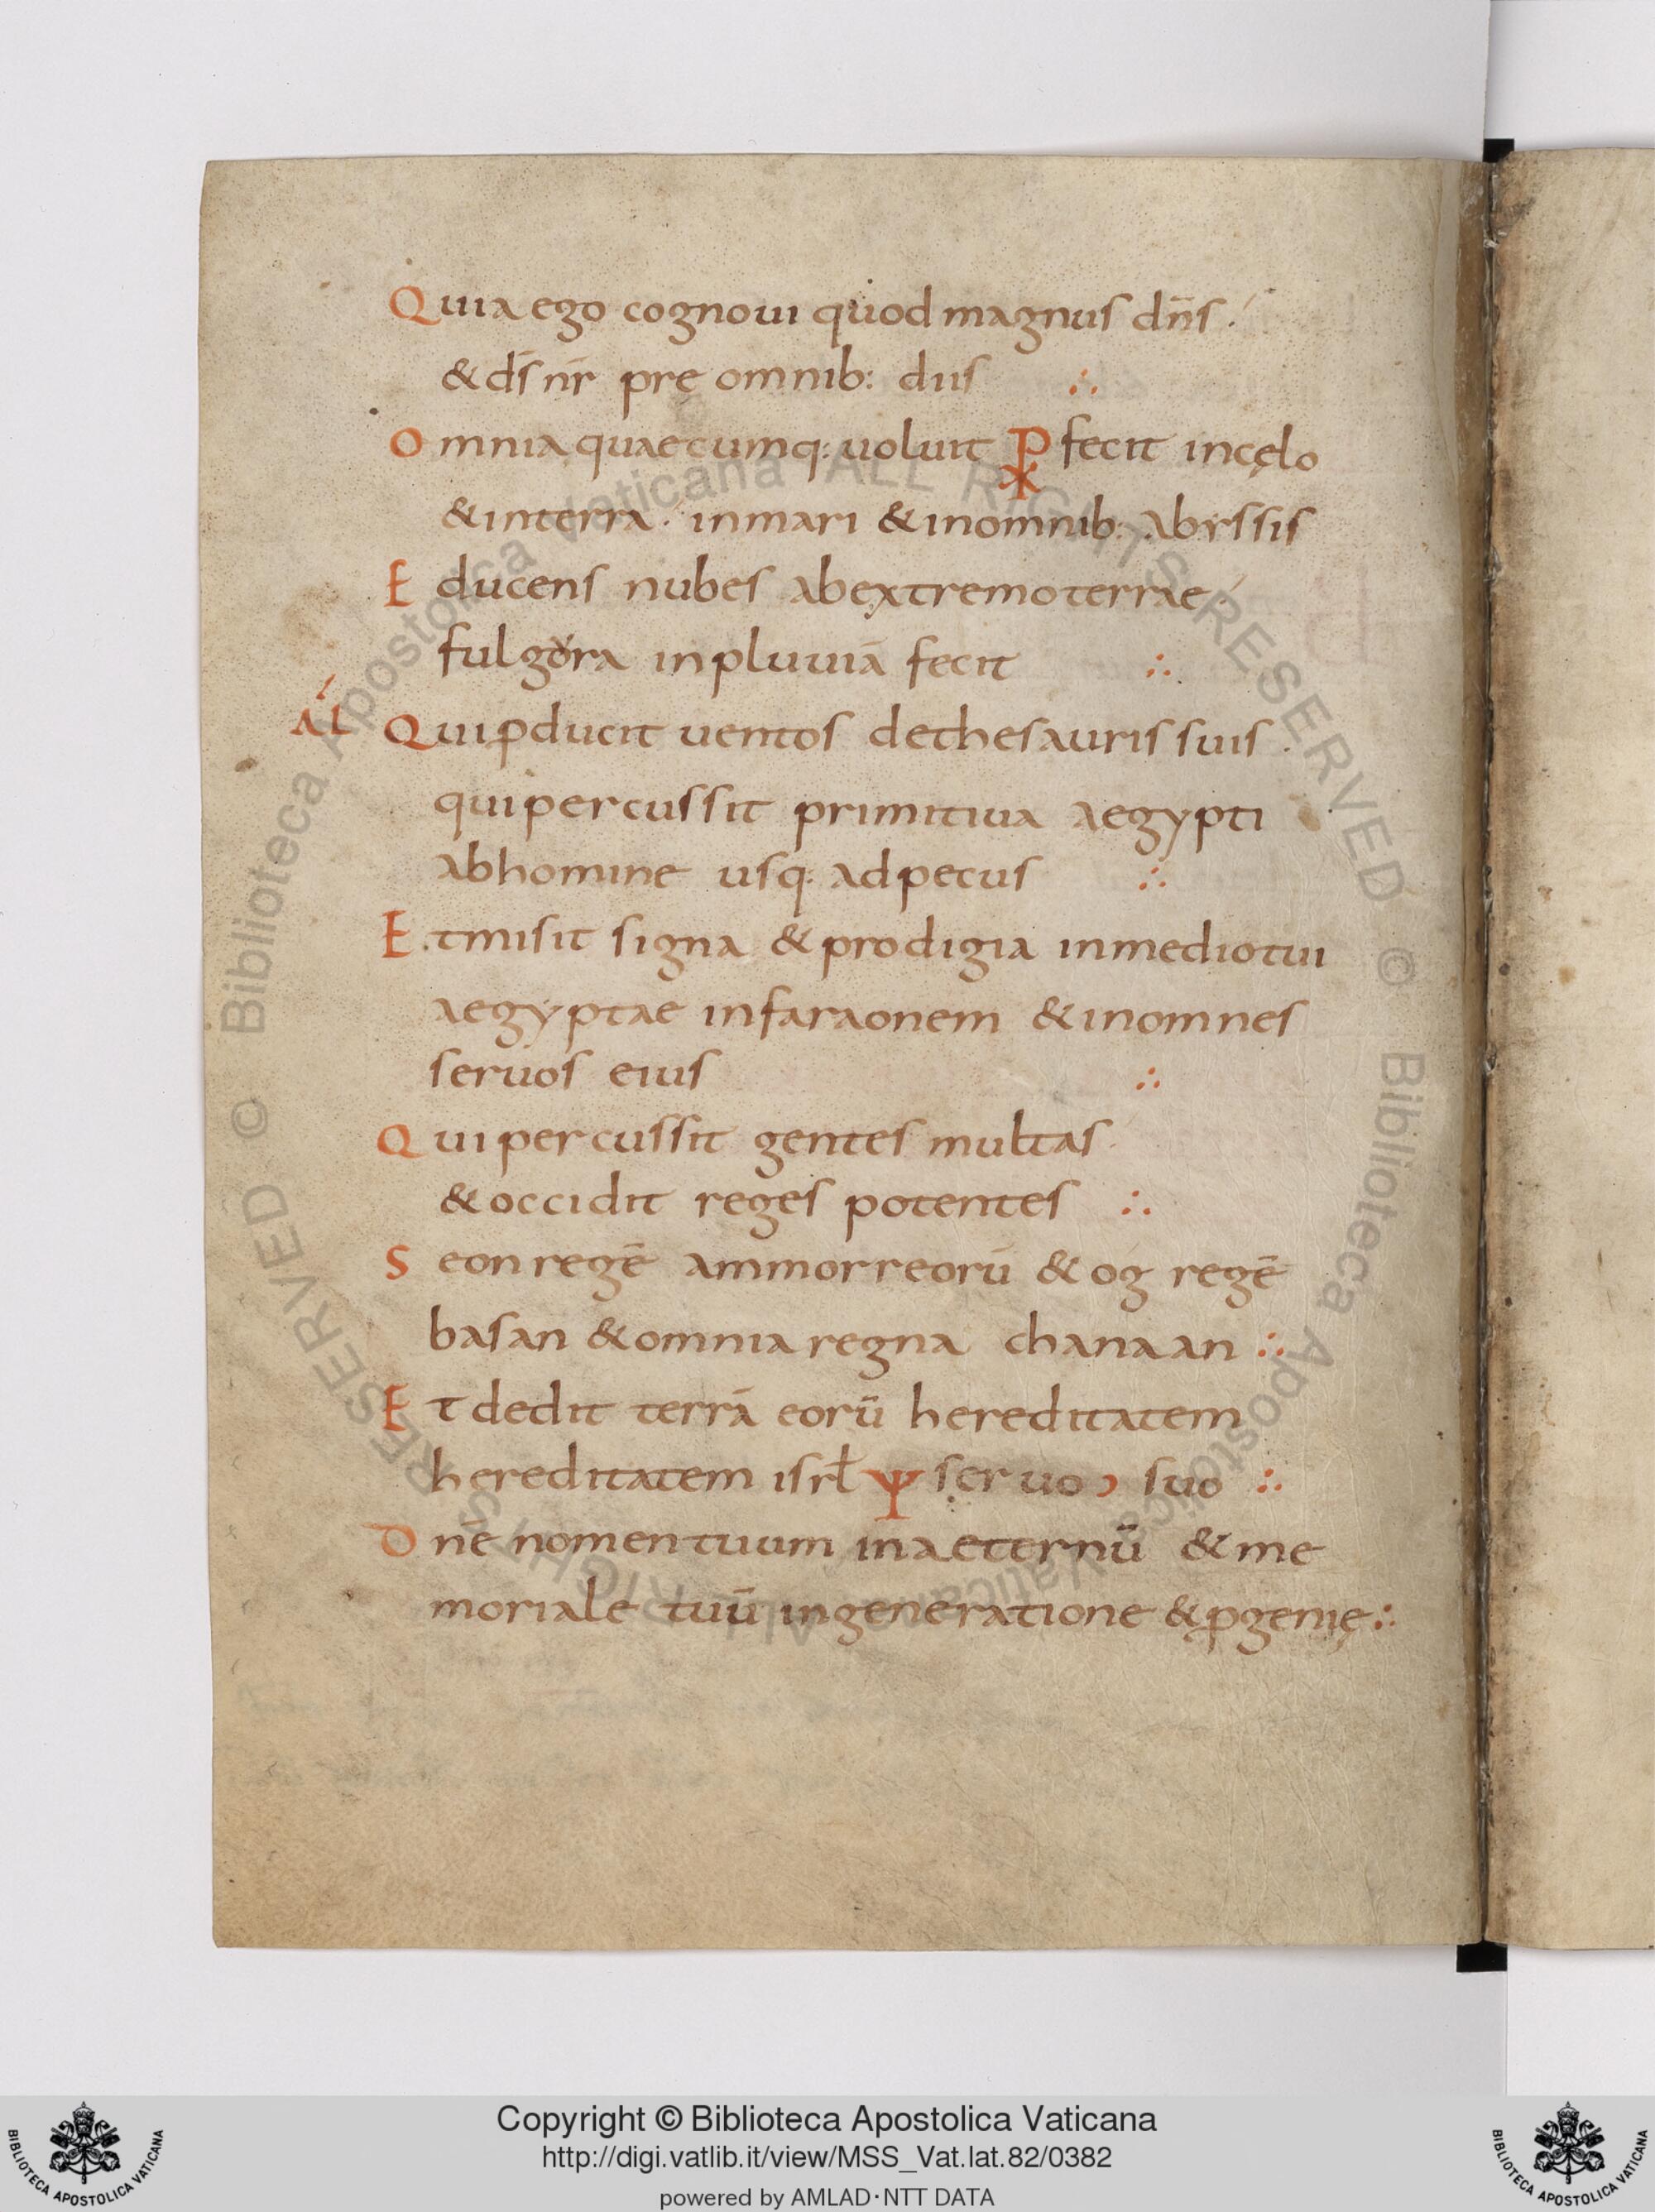 Quia ego cognoui quod magnus dn̄s .
& d̄s nr̄ pre omnib: diis ∴
Omnia quaecumq: uoluit ⳩ fecit incęlo
& interra . inmari & inomnib: abyssis
Educens nubes abextremo terrae
fulgora inpluuiā fecit ∴
al̄ Qui ꝓducit uentos dethesauris suis .
qui percussit primitiua aegypti
abhomine usq: adpecus ∴
Et misit signa & prodigia inmedio tui
aegyptae infaraonem & inomnes
seruos eius ∴
Qui percussit gentes multas
& occidit reges potentes ∴
Seon regē ammorreorū & og regē
basan & omnia regna chanaan ∴
Et dedit terrā eorū hereditatem
hereditatem isrł Ψ seruo suo ∴
Dn̄e nomen tuum inaeternū & me
moriale tuū ingeneratione & ꝓgenię ∴
© Biblioteca Apostolica Vaticana ALL RIGHTS RESERVED © Biblioteca Apostolica Vaticana ALL RIGHTS RESERVED
Copyright © Biblioteca Apostolica Vaticana
http://digi.vatlib.it/view/MSS_Vat.lat.82/0382
powered by AMLAD·NTT DATA
BIBLIOTECA APOSTOLICA VATICANA
BIBLIOTECA APOSTOLICA VATICANA